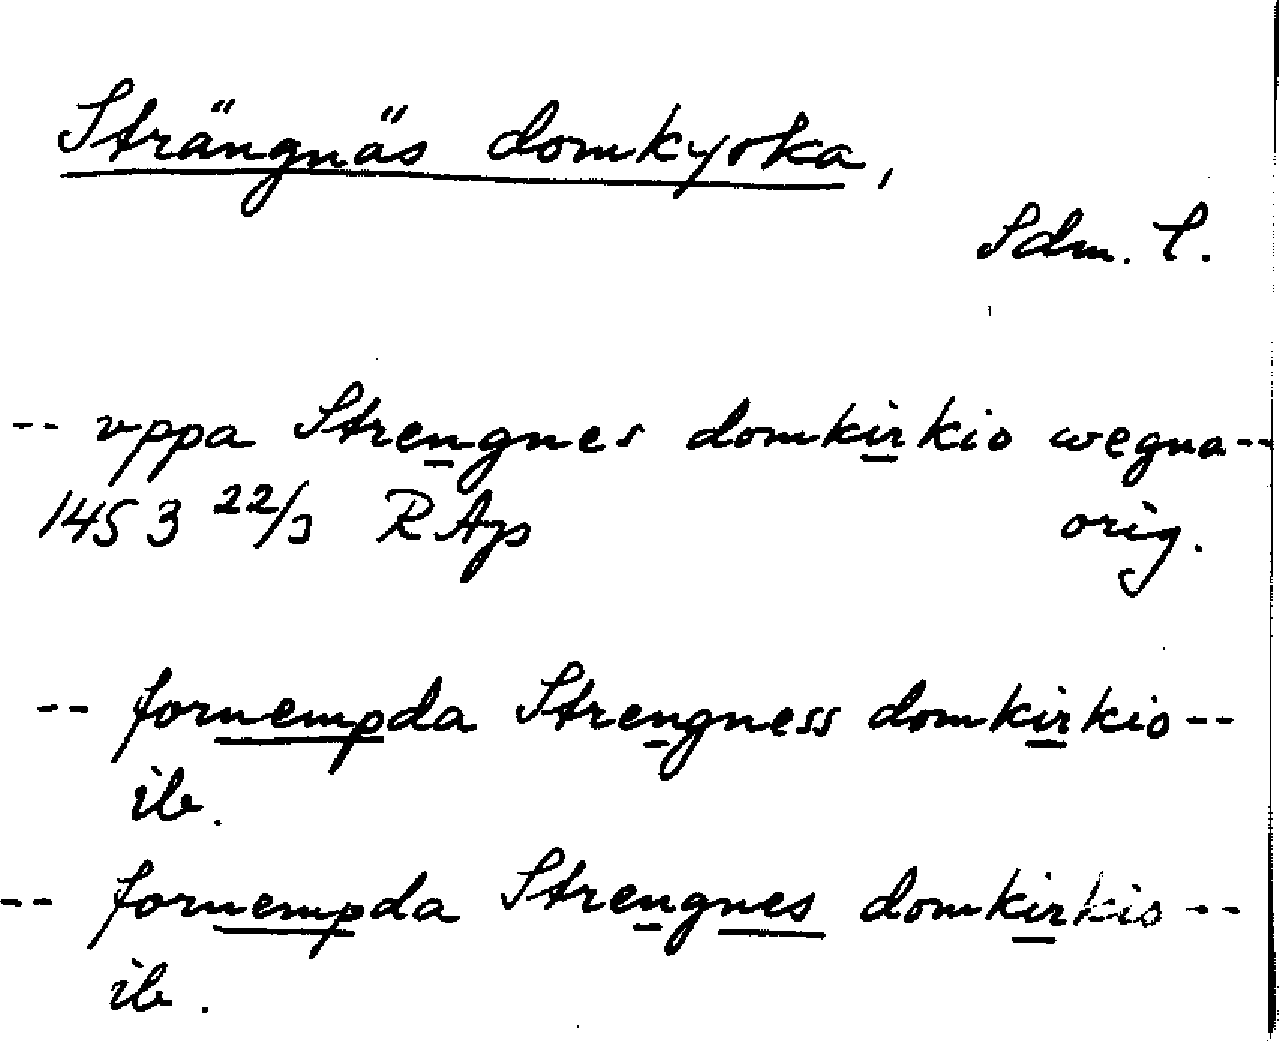 Strängnäs domkyrka,
Sdm. l.
-- vppa Strengnes domkirkio wegna--
1453 22/3 RAp orig.
-- fornempda Strengness domkirkio--
ib.
-- fornempda Strengnes domkirkio--
ib.